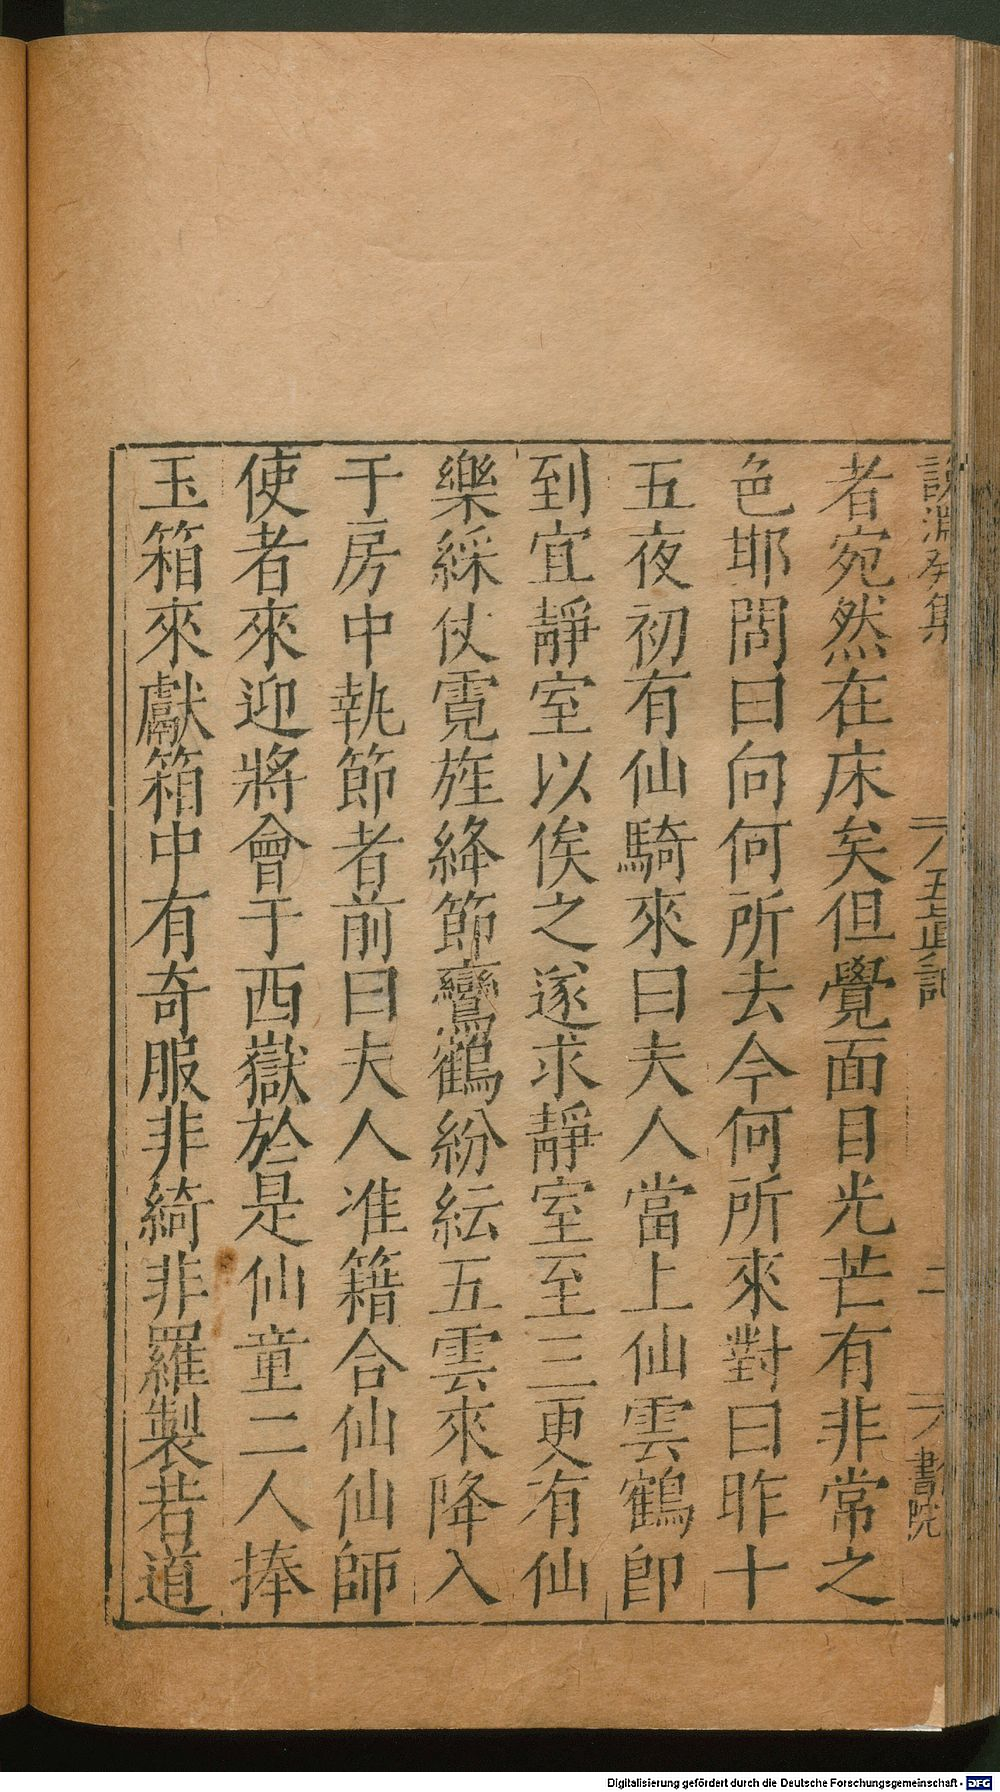 說淵癸集 五真記 二 書院
者宛然在床矣但覺面目光芒有非常之
色耶問曰向何所去今何所來對曰昨十
五夜初有仙騎來曰夫人當上仙雲鶴即
到宜靜室以俟之遂求靜室至三更有仙
樂綵仗霓旌絳節鸞鶴紛紜五雲來降入
于房中執節者前曰夫人准籍合仙仙師
使者來迎將會于西嶽於是仙童二人捧
玉箱來獻箱中有奇服非綺非羅製若道
Digitalisierung gefördert durch die Deutsche Forschungsgemeinschaft - DFG